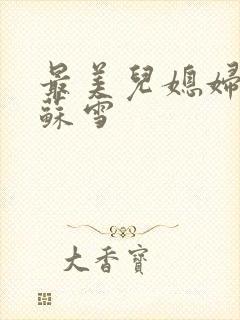 最美兒媳婦
蘇雪
大香寶